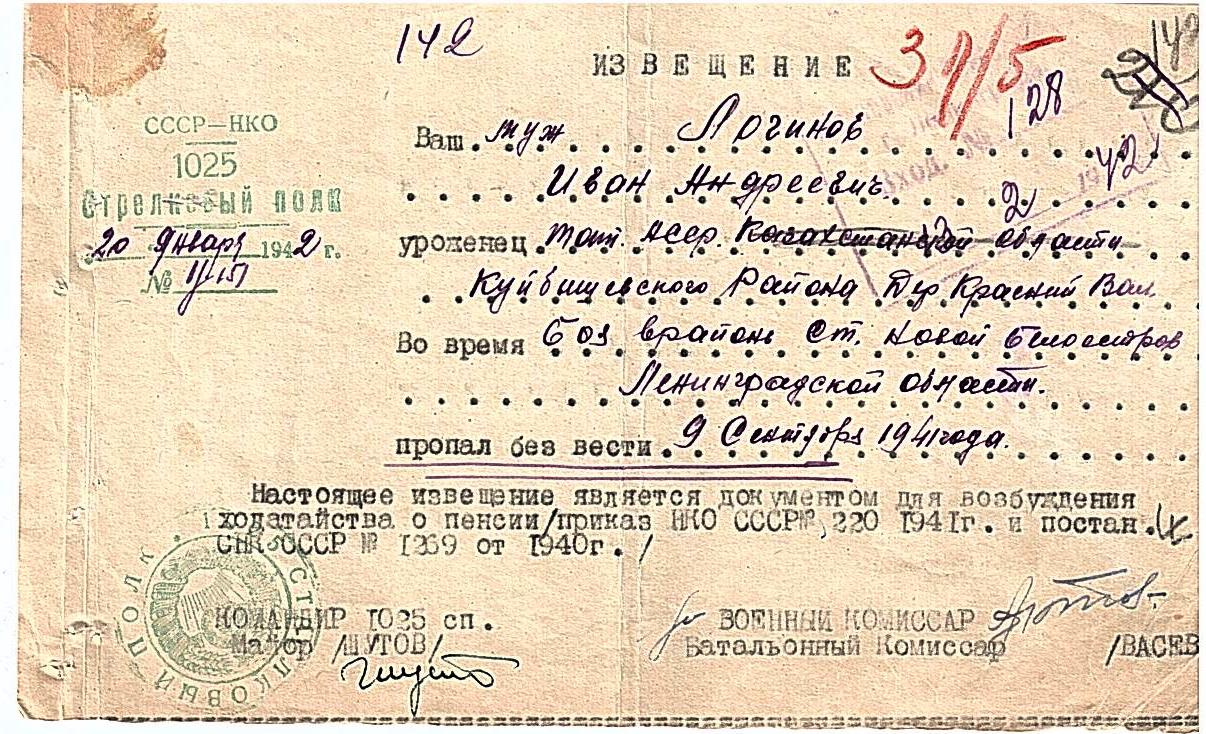 142
ИЗВЕЩЕНИЕ
31/5
142
128
СССР—НКО
1025
Стрелковый полк
20 Января 1942 г.
№
Ваш муж Логинов
Иван Андреевич
Вход. №
2 1942
уроженец Тат. Асср. Казахстанской области
Куйбишевского Района Дер Красний Вал
Во время боя врайоне Ст. Новой Белоостров
Ленинградской области.
пропал без вести 9 Сентября 1941 года.
Настоящее извещение является документом для возбуждения
ходатайства о пенсии/приказ НКО СССР№ 220 1941г. и постан.
СНК СССР № 1269 от 1940г./
КОМАНДИР 1025 сп.
Майор /ШУТОВ/
ВОЕННЫЙ КОМИССАР
Батальонный Комиссар /ВАСЕВ
СТРЕЛКОВЫЙ ПОЛК